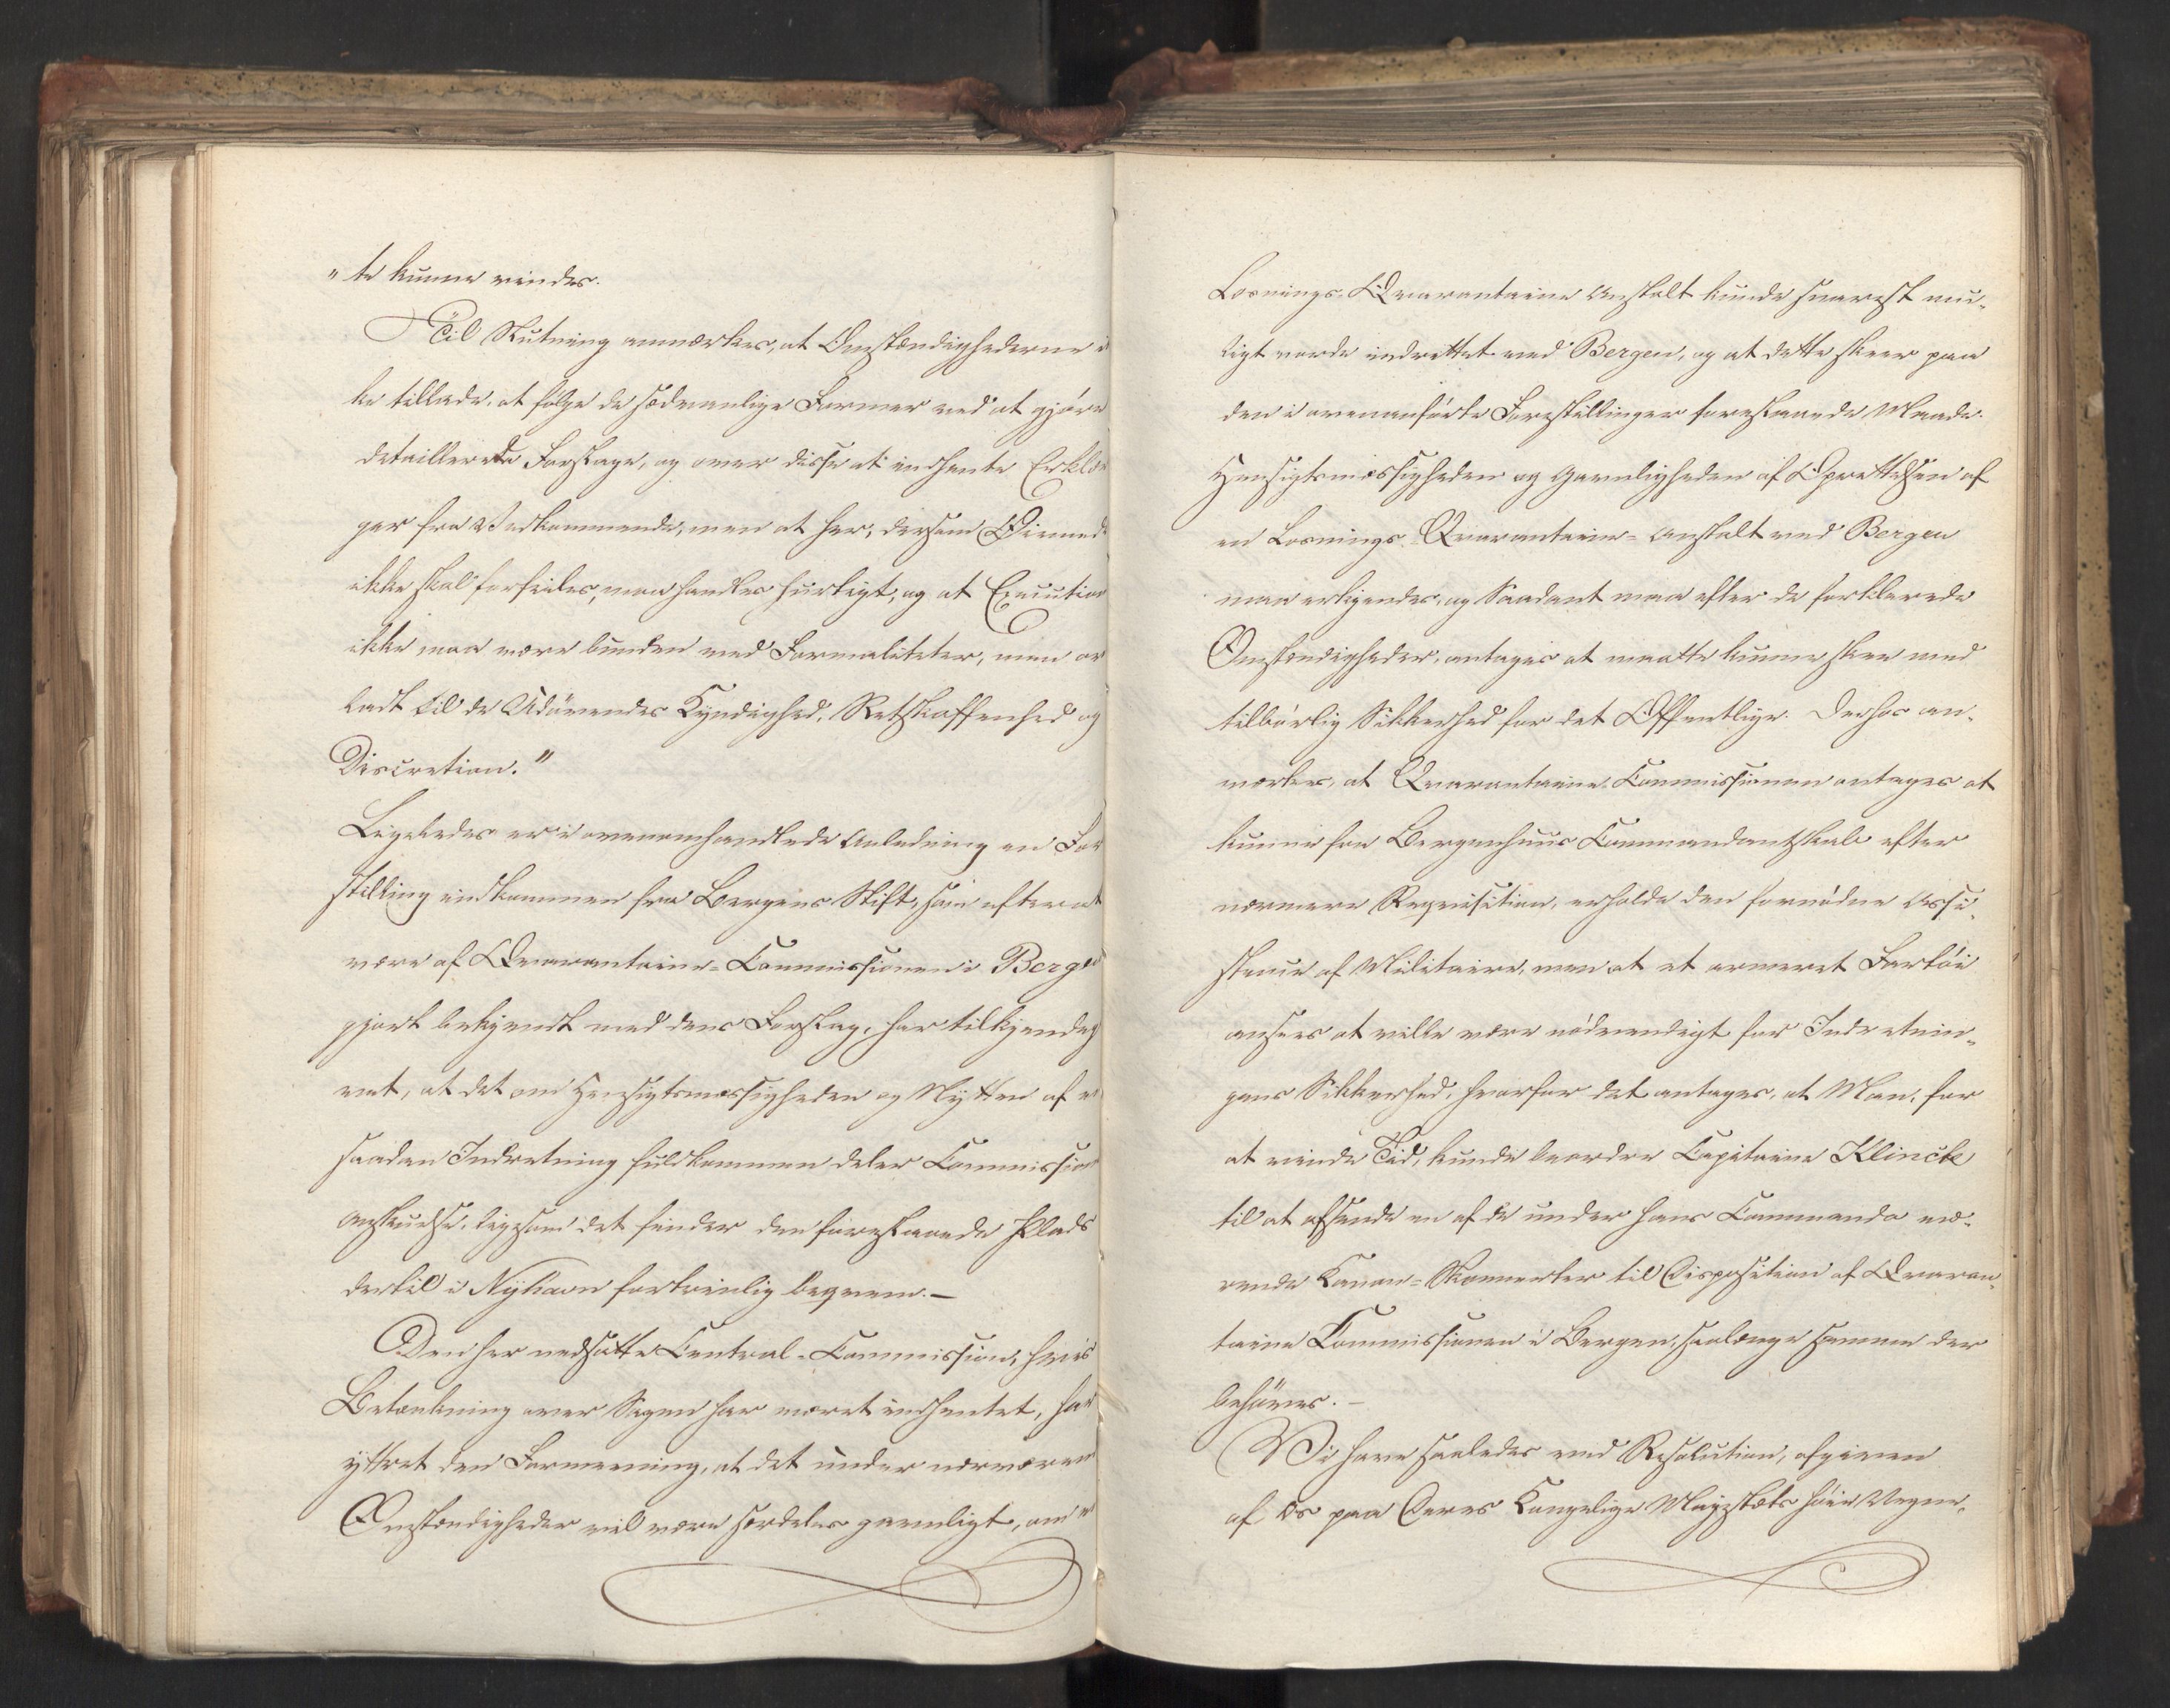 "te kunne vindes.
Til Slutning anmærkes, at Omstændighederne i
ke tillade, at følge de sædvanlige Former ved at gjøre
detaillerede Forslage, og over disse at indhente Erklæ
ger fra Vedkommende, men at her, dersom Øiemed
ikke skal forfeiles, maa handles hurtigt, og at Execution
ikke maa være bunden ved Formaliteter, men over
ladt til de Udøvendes Kyndighed, Retskaffenhed og
Discretion."
Ligeledes er i ovenomhandlede Anledning en Fore
stilling indkommen fra Bergens Stift, som efter at
være af Qvarantaine-Commissionen i Bergen
gjort bekjendt med dens Forslag, har tilkjendegi
vet, at det om Hensigtsmæssigheden og Nytten af en
saadan Indretning fuldkommen deler Commission
Anskuelse, ligesom det finder den foreslaaede Plads
dertil i Nyhavn fortrinlig beqvem.—
Den her nedsatte Central-Commission, hvis
Betænkning over Sagen har været indhentet, har
yttret den Formening, at det under nærværen
Omstændigheder vil være særdeles gavnligt, om en
Losnings-Qvarantaine Anstalt kunde snarest mu-
ligt vorde indrettet ved Bergen, og at dette skeer paa
den i ovenanførte Forestillinger foreslaaede Maade.
Hensigtsmæssigheden og Gavnligheden af Oprettelsen af
en Losnings-Qvarantaine-Anstalt ved Bergen
maa erkjendes, og Saadant maa efter de forklarede
Omstændigheder, antages at maatte kunne skee med
tilbørlig Sikkerhed for det Offentlige. Derhos an-
mærkes, at Qvarantaine-Commissionen antages at
kunne fra Bergenhuus Commandantskab efter
nærmere Reqvisition, erholde den fornødne Assi-
stence af Militaire, men at et armeret Fartøi
ansees at ville være nødvendigt for Indretnin-
gens Sikkerhed, hvorfor det antages, at Man, for
at vinde Tid, kunde beordre Capitaine Klinck
til at afsende en af de under hans Commando væ-
rende Kanon-Skonnerter til Disposition af Qvaran-
taine Commissionen i Bergen, saalænge samme der
behøves.—
Vi have saaledes ved Resolution, afgiven
af Os paa Deres Kongelige Majestæts høie Vegne,